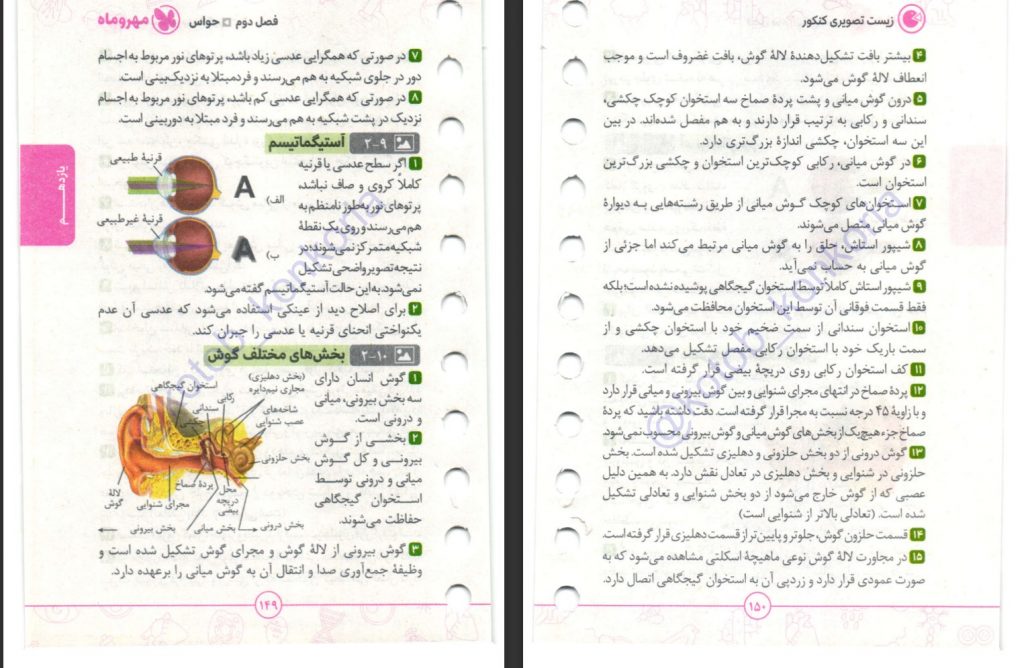 فصل دوم حواس مهروماه
۷ در صورتی که همگرایی عدسی زیاد باشد، پرتوهای نور مربوط به اجسام
دور در جلوی شبکیه به هم می‌رسند و فرد مبتلا به نزدیک‌بینی است.
۸ در صورتی که همگرایی عدسی کم باشد، پرتوهای نور مربوط به اجسام
نزدیک در پشت شبکیه به هم می‌رسند و فرد مبتلا به دوربینی است.
۲-۹ آستیگماتیسم
۱ اگر سطح عدسی یا قرنیه
کاملاً کروی و صاف نباشد،
پرتوهای نور به‌طور نامنظم به
هم می‌رسند و روی یک نقطهٔ
شبکیه متمرکز نمی‌شوند؛ در
نتیجه تصویر واضحی تشکیل
نمی‌شود. به این حالت آستیگماتیسم گفته می‌شود.
قرنیهٔ طبیعی
A
الف)
قرنیهٔ غیرطبیعی
A
ب)
۲ برای اصلاح دید از عینکی استفاده می‌شود که عدسی آن عدم
یکنواختی انحنای قرنیه یا عدسی را جبران کند.
۲-۱۰ بخش‌های مختلف گوش
۱ گوش انسان دارای
سه بخش بیرونی، میانی
و درونی است.
۲ بخشی از گوش
بیرونی و کل گوش
میانی و درونی توسط
استخوان گیجگاهی
حفاظت می‌شوند.
(بخش دهلیزی)
مجاری نیم‌دایره
استخوان گیجگاهی
رکابی
سندانی
چکشی
شاخه‌های
عصب شنوایی
بخش حلزونی
محل
دریچه
بیضی
پردهٔ صماخ
مجرای شنوایی
لالهٔ
گوش
بخش درونی
بخش میانی
بخش بیرونی
۳ گوش بیرونی از لالهٔ گوش و مجرای گوش تشکیل شده است و
وظیفهٔ جمع‌آوری صدا و انتقال آن به گوش میانی را برعهده دارد.
۱۴۹
یازدهم
@kotob_konkoria
زیست تصویری کنکور
۴ بیشتر بافت تشکیل‌دهندهٔ لالهٔ گوش، بافت غضروف است و موجب
انعطاف لالهٔ گوش می‌شود.
۵ درون گوش میانی و پشت پردهٔ صماخ سه استخوان کوچک چکشی،
سندانی و رکابی به ترتیب قرار دارند و به هم مفصل شده‌اند. در بین
این سه استخوان، چکشی اندازهٔ بزرگ‌تری دارد.
۶ در گوش میانی، رکابی کوچک‌ترین استخوان و چکشی بزرگ‌ترین
استخوان است.
۷ استخوان‌های کوچک گوش میانی از طریق رشته‌هایی به دیوارهٔ
گوش میانی متصل می‌شوند.
۸ شیپور استاش، حلق را به گوش میانی مرتبط می‌کند اما جزئی از
گوش میانی به حساب نمی‌آید.
۹ شیپور استاش کاملاً توسط استخوان گیجگاهی پوشیده نشده است؛ بلکه
فقط قسمت فوقانی آن توسط این استخوان محافظت می‌شود.
۱۰ استخوان سندانی از سمت ضخیم خود با استخوان چکشی و از
سمت باریک خود با استخوان رکابی مفصل تشکیل می‌دهد.
۱۱ کف استخوان رکابی روی دریچهٔ بیضی قرار گرفته است.
۱۲ پردهٔ صماخ در انتهای مجرای شنوایی و بین گوش بیرونی و میانی قرار دارد
و با زاویهٔ ۴۵ درجه نسبت به مجرا قرار گرفته است. دقت داشته باشید که پردهٔ
صماخ جزء هیچ‌یک از بخش‌های گوش میانی و گوش بیرونی محسوب نمی‌شود.
۱۳ گوش درونی از دو بخش حلزونی و دهلیزی تشکیل شده است. بخش
حلزونی در شنوایی و بخش دهلیزی در تعادل نقش دارد. به همین دلیل
عصبی که از گوش خارج می‌شود از دو بخش شنوایی و تعادلی تشکیل
شده است. (تعادلی بالاتر از شنوایی است)
۱۴ قسمت حلزون گوش، جلوتر و پایین‌تر از قسمت دهلیزی قرار گرفته است.
۱۵ در مجاورت لالهٔ گوش نوعی ماهیچهٔ اسکلتی مشاهده می‌شود که به
صورت عمودی قرار دارد و زردپی آن به استخوان گیجگاهی اتصال دارد.
۱۵۰
@kotob_konkoria